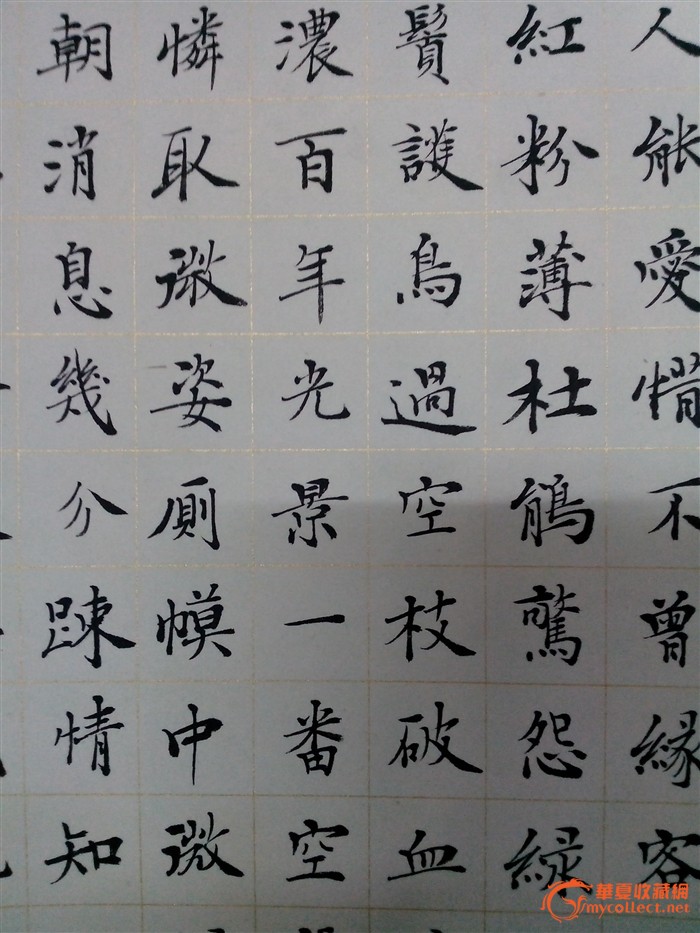 人能愛惜不曾縁容
紅粉薄杜鵑驚怨緑
鬢護鳥過空枝破血
濃百年光景一番空
憐取微姿廁幙中微
朝消息幾分踈情知
華夏收藏網
mycollect.net